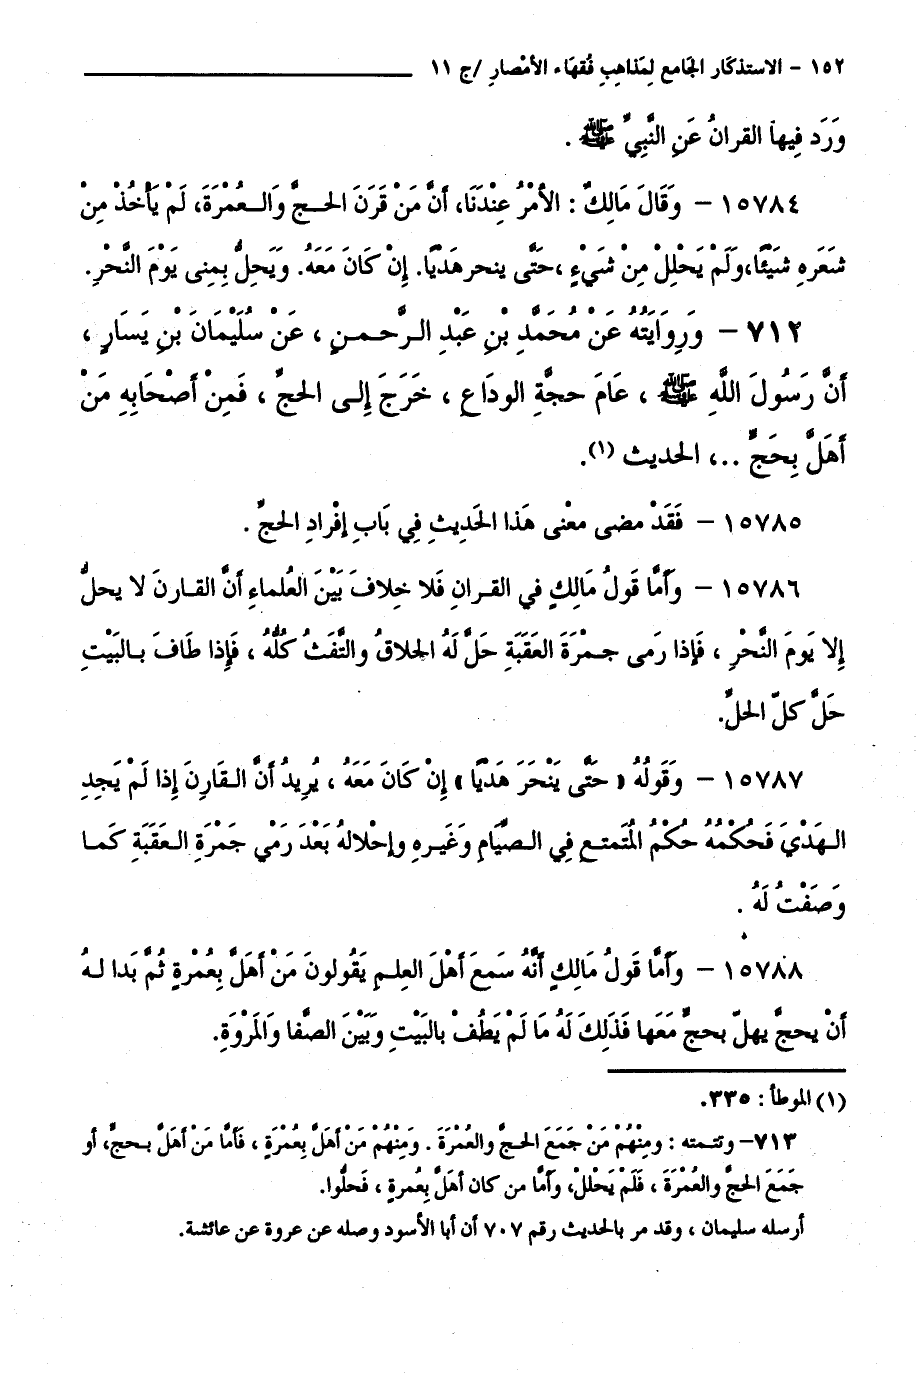 ١٥٢ - الاستذكار الجامع لِمَذاهِبِ فُقهَاء الأمْصارِ /ج ١١
وَرَد فِيها القرانُ عَنِ النَّبِيِّ ﷺ .
١٥٧٨٤ – وَقَالَ مَالِكٌ : الأمْرُ عِنْدَنَا، أنَّ مَنْ قَرَنَ الحَجَّ وَالعُمْرَةَ، لَمْ يَأْخُذْ مِنْ
شَعَرِهِ شَيْئًا،وَلَمْ يَحْلِلْ مِنْ شَيْءٍ ،حَتَّى ينحر هَدْيًا. إِنْ كَانَ مَعَهُ. ويَحِلُّ بِمِنى يَوْمَ النَّحْرِ.
٧١٢ – وَرِوَايَتُهُ عَنْ مُحَمَّدِ بْنِ عَبْدِ الرَّحْمنِ ، عَنْ سُلَيْمَانَ بْنِ يَسَارٍ ،
أنَّ رَسُولَ اللَّهِ ﷺ ، عَامَ حجَّةِ الودَاعِ ، خَرَجَ إِلى الحَجِّ ، فَمِنْ أصْحَابِهِ مَنْ
أهَلَّ بِحَجٍّ ..، الحديث (١).
١٥٧٨٥ – فَقَدْ مضى معْنى هَذا الحَدِيثِ فِي بَابِ إفْرادِ الحجِّ .
١٥٧٨٦ – وأمَّا قَولُ مَالِكٍ في القرانِ فَلا خلافَ بَيْنَ العُلماءِ أنَّ القارنَ لا يحلُّ
إلا يَومَ النَّحْرِ ، فَإذا رَمى جمْرَةَ العَقَبَةِ حَلَّ لَهُ الحلاقُ والتَّفَثُ كُلُّهُ ، فَإِذا طَافَ بالبَيْتِ
حَلَّ كلّ الحلِّ.
١٥٧٨٧ – وَقَولُهُ « حَتَّى يَنْحَرَ هَدْيًا » إِنْ كَانَ مَعَهُ ، يُرِيدُ أنَّ القَارِنَ إذا لَمْ يَجِدِ
الهَدْيَ فَحُكْمُهُ حُكْمُ المُتَمتعِ فِي الصِّيَامِ وَغَيرِهِ وإحْلالهُ بَعْدَ رَمْي جَمْرَةِ العَقَبَةِ كَما
وَصَفْتُ لَهُ .
١٥٧٨٨ – وَأَمَّا قَولُ مَالِكٍ أنَّهُ سَمعَ أهْلَ العِلمِ يَقُولونَ مَنْ أهَلَّ بِعُمْرةٍ ثُمَّ بَدا لهُ
أنْ يحجَّ يهلّ بحجٍّ مَعَها فَذَلِكَ لَهُ مَا لَمْ يَطُفْ بالبَيْتِ وَبَيْنَ الصَّفا وَالمَرْوَةِ.
(١) الموطأ : ٣٣٥.
٧١٣– وتتمته : ومِنْهُمْ مَنْ جَمَعَ الحَجَّ والعُمْرَةَ . وَمِنْهُمْ مَنْ أهَلَّ بِعُمْرَةٍ ، فَأمَّا مَنْ أهَلَّ بحجٍّ، أو
جَمَعَ الحَجَّ والعُمْرَةَ ، فَلَمْ يَحْلِلْ، وَأمَّا من كان أهَلَّ بِعُمرةٍ ، فَحلُّوا.
أرسله سليمان ، وقد مر بالحديث رقم ٧٠٧ أن أبا الأسود وصله عن عروة عن عائشة.